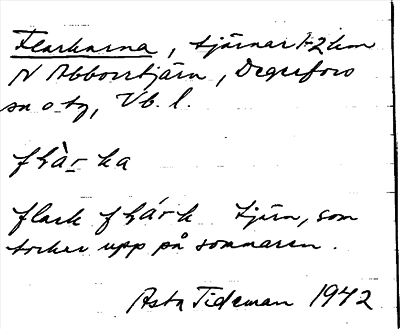 Flarkarna, tjärnar 1-2 km
N Abborrtjärn, Degerfors
sn o tg, Vb. l.
flàrka
flark flárk tjärn, som
torkar upp på sommaren.
Asta Tideman 1942